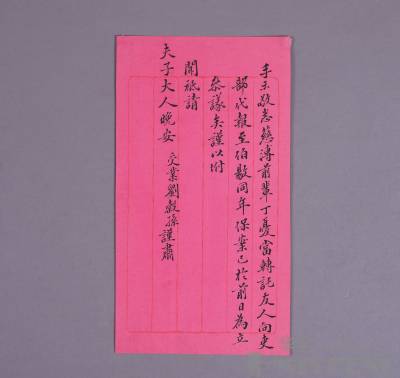 手示敬悉慈溥前輩丁憂當轉託友人向吏
部代報至伯敭同年保案已於前日為立
奏議矣謹以附
聞祗請
夫子大人晚安　受業劉毅孫謹肅